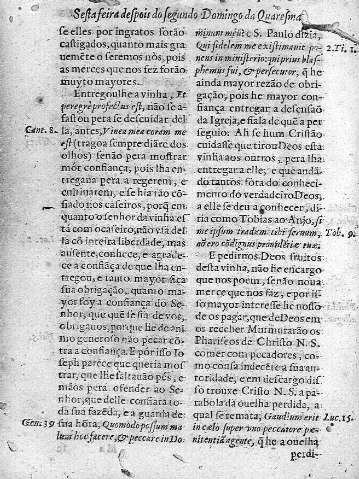 Sesta feira despois do segundo Domingo da Quaresma
se elles por ingratos forão
castigados, quanto mais gra
uemẽte o seremos nòs, pois
as merces que nos fez forão
muyto mayores.
Entregoulhe a vinha, Et
peregrè profectus est, não se a-
fastou pera se descuidar del
la, antes, Vinea mea coram me
est (trago a sempre diãte dos
olhos) senão pera mostrar
mòr confiança, pois lha en-
tregaua pera a regerem, e
cultiuarem, e se hia tão cõ-
fiado nos caseiros, porq̃ en
quanto o senhor da vinha es
tá com o caseiro, não vsa del
la cõ inteira liberdade, mas
ausente, conhece, e agrade-
ce a confiãça de que lha en-
tregou, e tanto mayor áca
sua obrigação, quanto ma-
yor foy a confiança do Se-
nhor, que quẽ se fia de vos,
obrigauos, porque he de ani
mo generoso não pecar cõ-
tra a confiança. E por isso Io
seph parece que queria mos
trar, que lhe faltauão pès, e
mãos pera offender ao Se-
nhor, que delle confiara to-
da sua fazẽda, e a guarda de
sua hõra, Quomodo possum ma
lum hoc facere, & peccare in Do
Cant. 8.
Gen. 39
minum meũ? E S. Paulo dizia,
Qui fidelem me existimauit po-
nens in ministerio: qui prius blas-
phemus fui, & persecutor, q̃ he
ainda mayor rezão de obri-
gação, pois he mayor con-
fiança entregar a defensaõ
da Igreja, e fiala de quẽ a per
seguio. Ah se hum Cristão
cuidasse que tirou Deos esta
vinha a outros, pera lha
entregar a elle, e que andã-
do tantos fòra do conheci-
mento do verdadeiro Deos,
a elle se deu a conhecer, di-
ria como Tobias ao Anjo, si
me ipsum tradam tibi seruum,
nõ ero cõdignus prouidẽtiæ tuæ.
E pedirnos Deos fruitos
desta vinha, não he encargo
que nos poem, senão noua
merce que nos faz, e por is-
so mayor interesse he nosso
de os pagar, que de Deos em
os receber. Murmurarão os
Phariseos de Christo N. S.
comer com peccadores, co-
mo cousa indecẽte a sua au-
toridade, e em descargo dis-
so trouxe Cristo N. S. a pa-
rabola da ouelha perdida, a
qual se remata; Gaudium erit
in cœlo super vno peccatore pœ-
nitentiã agente, q̃ he a ouelha
perdi-
2. Ti. 1.
Tob. 9.
Luc. 15.